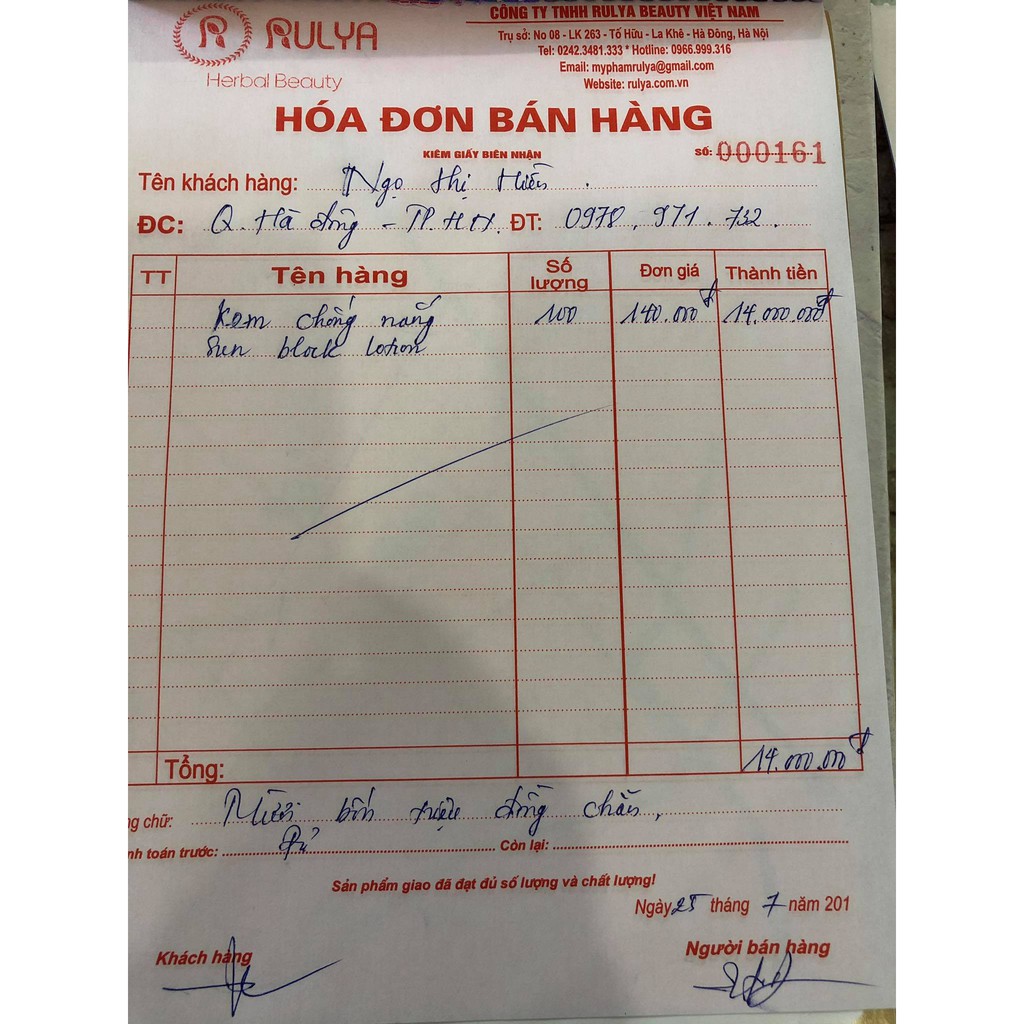 RULYA
Herbal Beauty
CÔNG TY TNHH RULYA BEAUTY VIỆT NAM
Trụ sở: No 08 - LK 263 - Tố Hữu - La Khê - Hà Đông, Hà Nội
Tel: 0242.3481.333 * Hotline: 0966.999.316
Email: myphamrulya@gmail.com
Website: rulya.com.vn
HÓA ĐƠN BÁN HÀNG
KIÊM GIẤY BIÊN NHẬN
SỐ: 000161
Tên khách hàng: Ngọ thị Hiền.
ĐC: Q. Hà đông - TP. HN. ĐT: 0978.971.732.
TT Tên hàng Số lượng Đơn giá Thành tiền
Kem chống nắng 100 140.000đ 14.000.000đ
Sun block lotion
Tổng: 14.000.000đ
ng chữ: Mười bốn triệu đồng chẵn,
nh toán trước: Đủ Còn lại:
Sản phẩm giao đã đạt đủ số lượng và chất lượng!
Ngày 25 tháng 7 năm 201
Khách hàng Người bán hàng